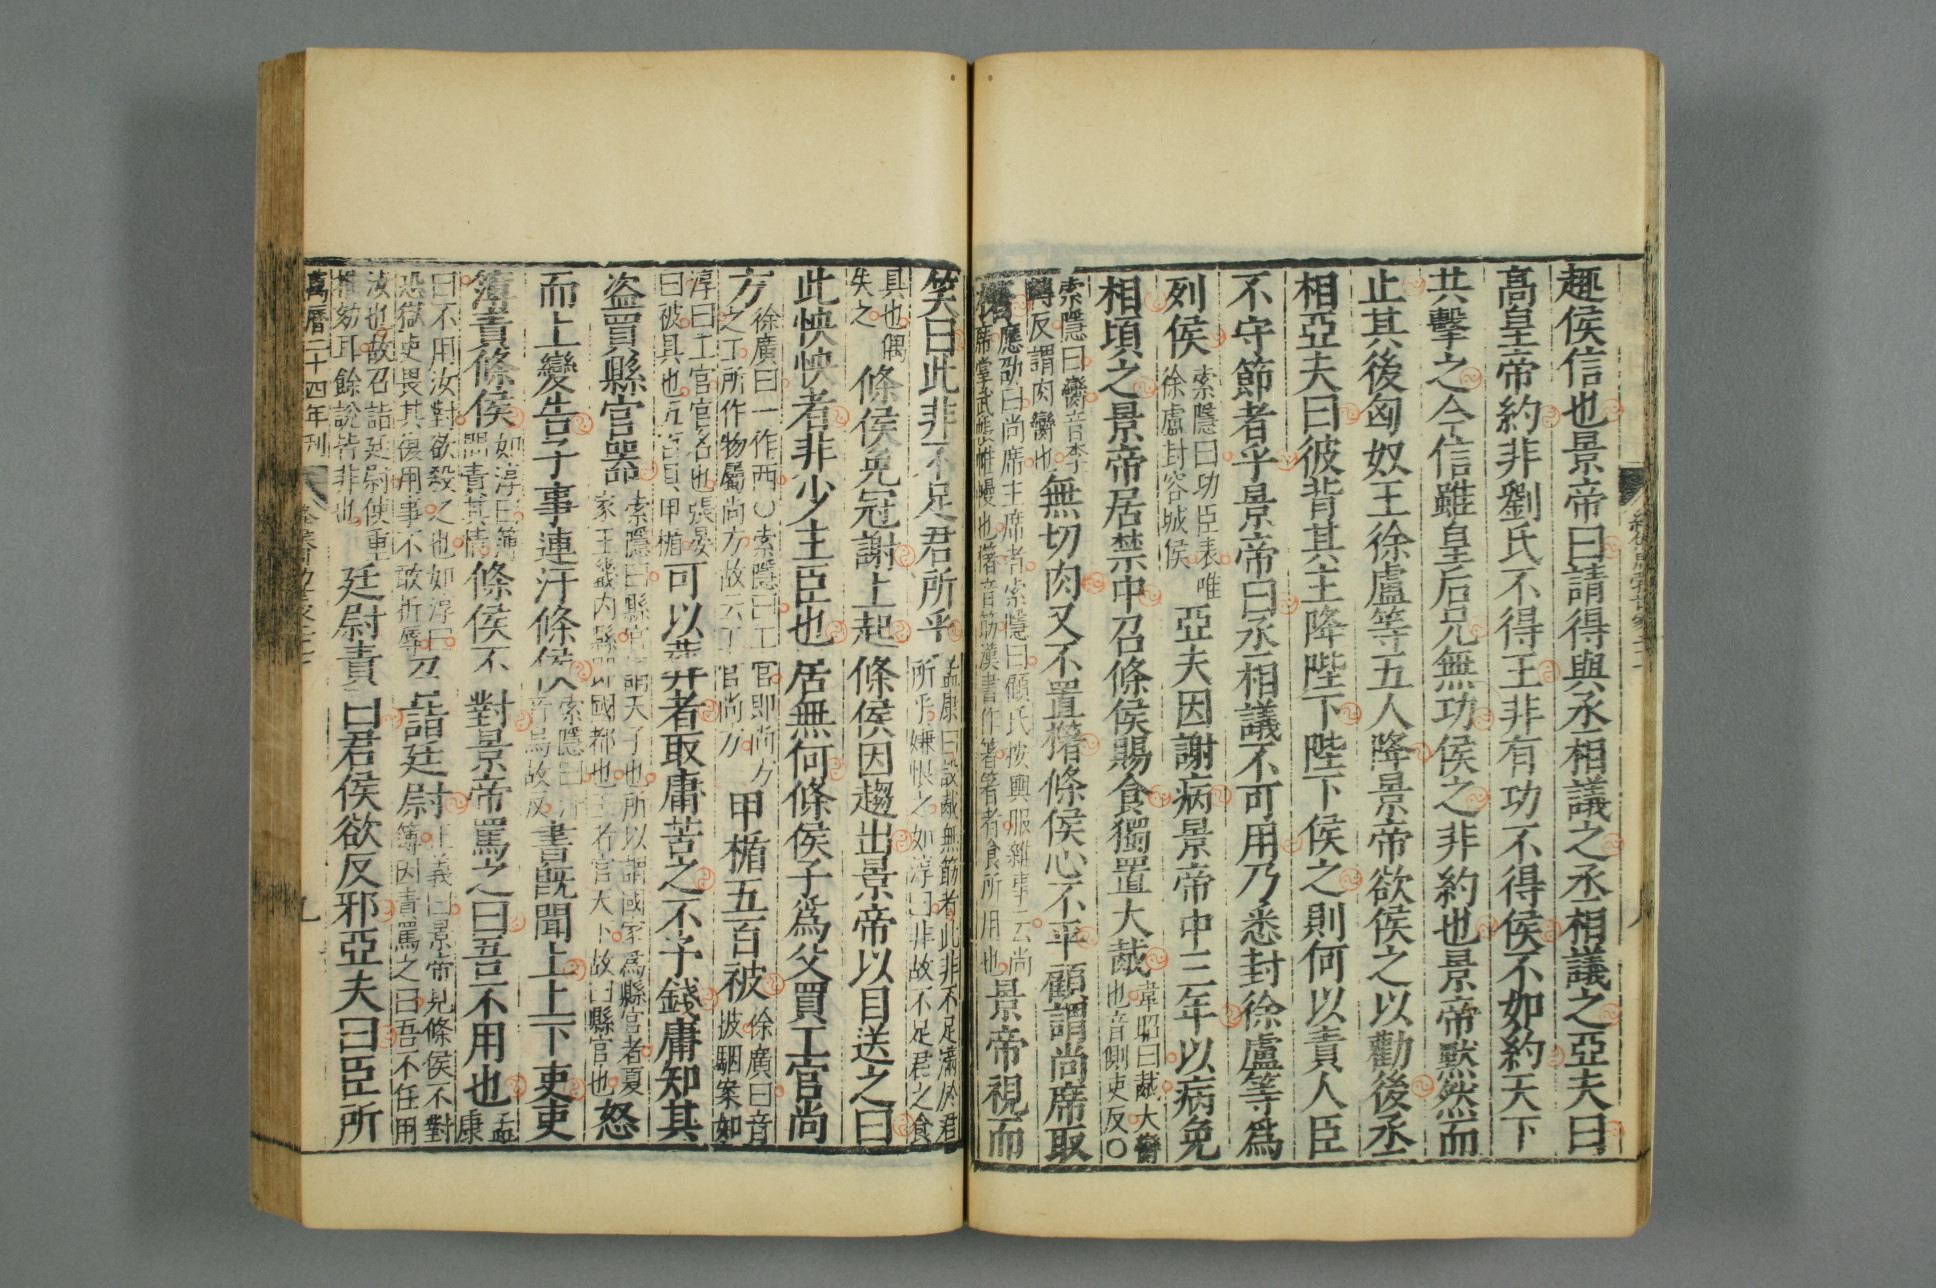 趣侯信也景帝曰請得與丞相議之丞相議之亞夫曰
高皇帝約非劉氏不得王非有功不得侯不如約天下
共擊之今信雖皇后兄無功侯之非約也景帝默然而
止其後匈奴王徐盧等五人降景帝欲侯之以勸後丞
相亞夫曰彼背其主降陛下陛下侯之則何以責人臣
不守節者乎景帝曰丞相議不可用乃悉封徐盧等爲
列侯索隱曰功臣表唯徐盧封容城侯亞夫因謝病景帝中三年以病免
相頃之景帝居禁中召條侯賜食獨置大胾韋昭曰胾大臠也音側吏反○
索隱曰臠音李轉反謂肉臠也無切肉又不置櫡條侯心不平顧謂尚席取
櫡應劭曰尚席主席者索隱曰顧氏按輿服雜事云尚席掌武帳帷幔也櫡音筯漢書作箸箸者食所用也景帝視而
笑曰此非不足君所乎孟康曰設胾無筯者此非不足滿於君所乎嫌恨之如淳曰非故不足君之食
具也偶失之條侯免冠謝上起條侯因趨出景帝以目送之曰
此怏怏者非少主臣也居無何條侯子爲父買工官尚
方徐廣曰一作西○索隱曰工官即尚方之工所作物屬尚方故云工官尚方甲楯五百被徐廣曰音披駰案如
淳曰工官官名也張晏曰被具也五百具甲楯可以葬者取庸苦之不予錢庸知其
盜買縣官器索隱曰縣官謂天子也所以謂國家爲縣官者夏家王畿內縣即國都也王者官天下故曰縣官也怒
而上變告子事連汙條侯索隱曰汙音烏故反書既聞上上下吏吏
簿責條侯如淳曰簿問責其情條侯不對景帝罵之曰吾不用也孟康
曰不用汝對欲殺之也如淳曰恐獄吏畏其復用事不敢折辱召詣廷尉正義曰景帝見條侯不對簿因責罵之曰吾不任用
汝也故召詣廷尉使重推劾耳餘說皆非也廷尉責曰君侯欲反邪亞夫曰臣所
萬曆二十四年刊
九